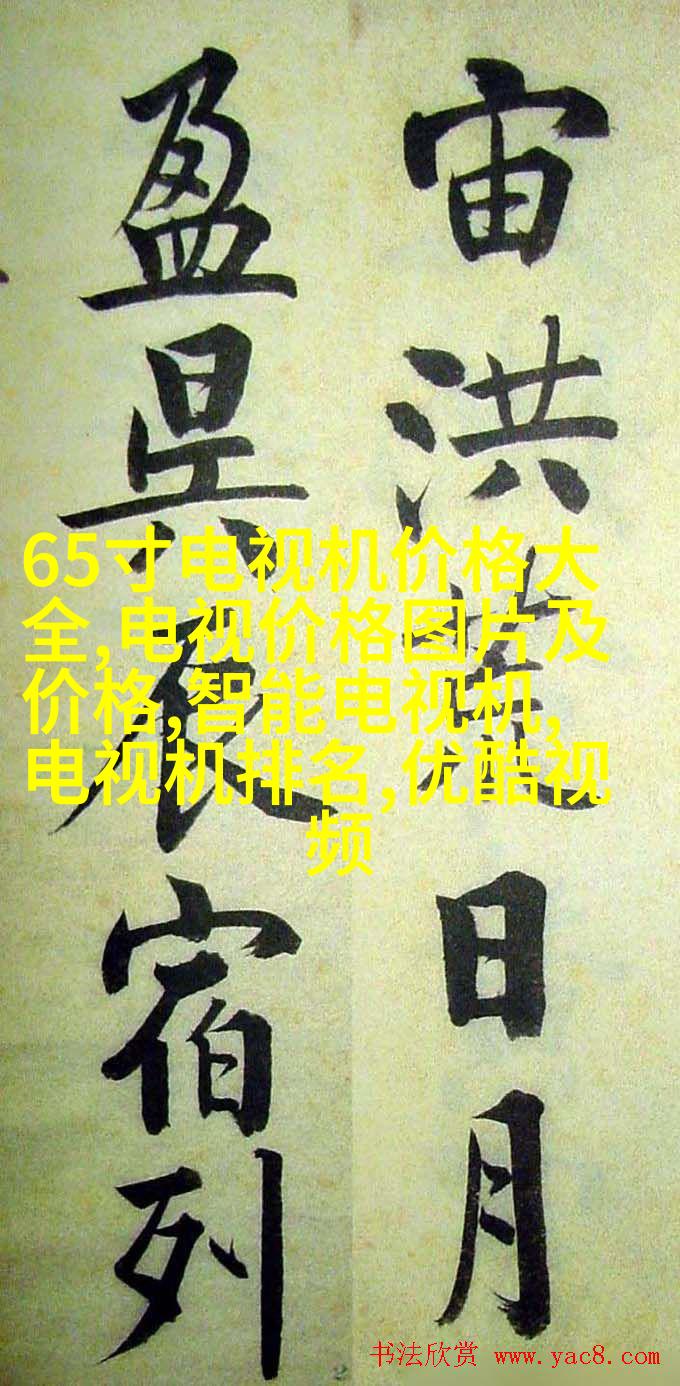 宙洪荒日月
盈昃辰宿列
65寸电视机价格大
全,电视价格图片及
价格,智能电视机,
电视机排名,优酷视
频
书法欣赏 www.yac8.com